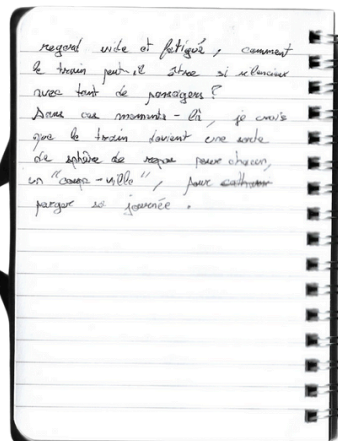 regard vide et fatigué, comment
le train peut-il être si silencieux
avec tant de passagers ?
Dans ces moments-là, je crois
que le train devient une sorte
de sphère de repos pour chacun,
un "coupe-ville", pour
purger sa journée.